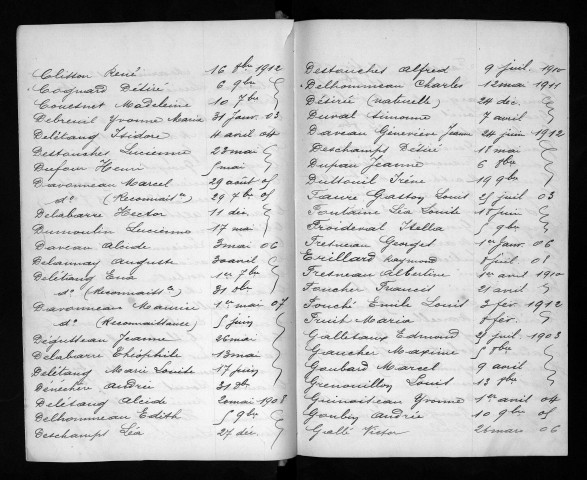 Clisson René 16 8bre 1912
Coquard Désiré 6 9bre
Cousset Madeleine 10 7bre
Debreuil Yvonne Marie 31 Janv. 03
Délétang Isidore 4 avril 04
Destouches Lucienne 23 mai
Dufour Henri 5 mai
Davonneau Marcel 29 août 05
do (Reconnaisce) 29 7bre 05
Delabarre Hector 11 déc.
Dumoulin Lucienne 17 mai
Daveau Alcide 3 mai 06
Delaunay Auguste 30 avril
Délétang Eva 1er 7bre
do (Reconnaisce) 31 8bre
Davonneau Maurice 1er mai 07
do (Reconnaissance) 5 juin
Dégusseau Jeanne 26 mai
Delabarre Théophile 13 mai
Délétang Marie Louise 17 juin
Dénéchère André 31 8bre
Délétang Alcide 20 mai 1908
Delhommeau Edith 5 9bre
Deschamps Léa 27 déc.
Destouches Alfred 9 juil. 1910
Delhommeau Charles 12 mai 1911
Désiré (naturelle) 24 déc.
Duval Simonne 7 avril
Daveau Geneviève Jeanne 24 juin 1912
Deschamps Désiré 18 mai
Dupau Jeanne 6 8bre
Duteuil Irène 19 9bre
Faure Gaston Louis 25 juil 03
Fontaine Léa Louise 18 juin
Froideval Stella 5 9bre
Fresneau Georges 1er Janv. 06
Raymond 8 juil. 08
Fresneau Albertine 1er avril 1910
Foucher Francis 21 avril
Fouché Emile Louis 3 fév 1912
Fruit Maria 8 fév.
Galleteaux Edmond 25 juil. 1903
Gaucher Maxime 5 8bre
Goubard Marcel 9 avril
Grenouillon Louis 13 8bre
Guinoiseau Yvonne 1er avril 04
Goubin André 10 9bre 05
Gallé Victor 26 mars 06